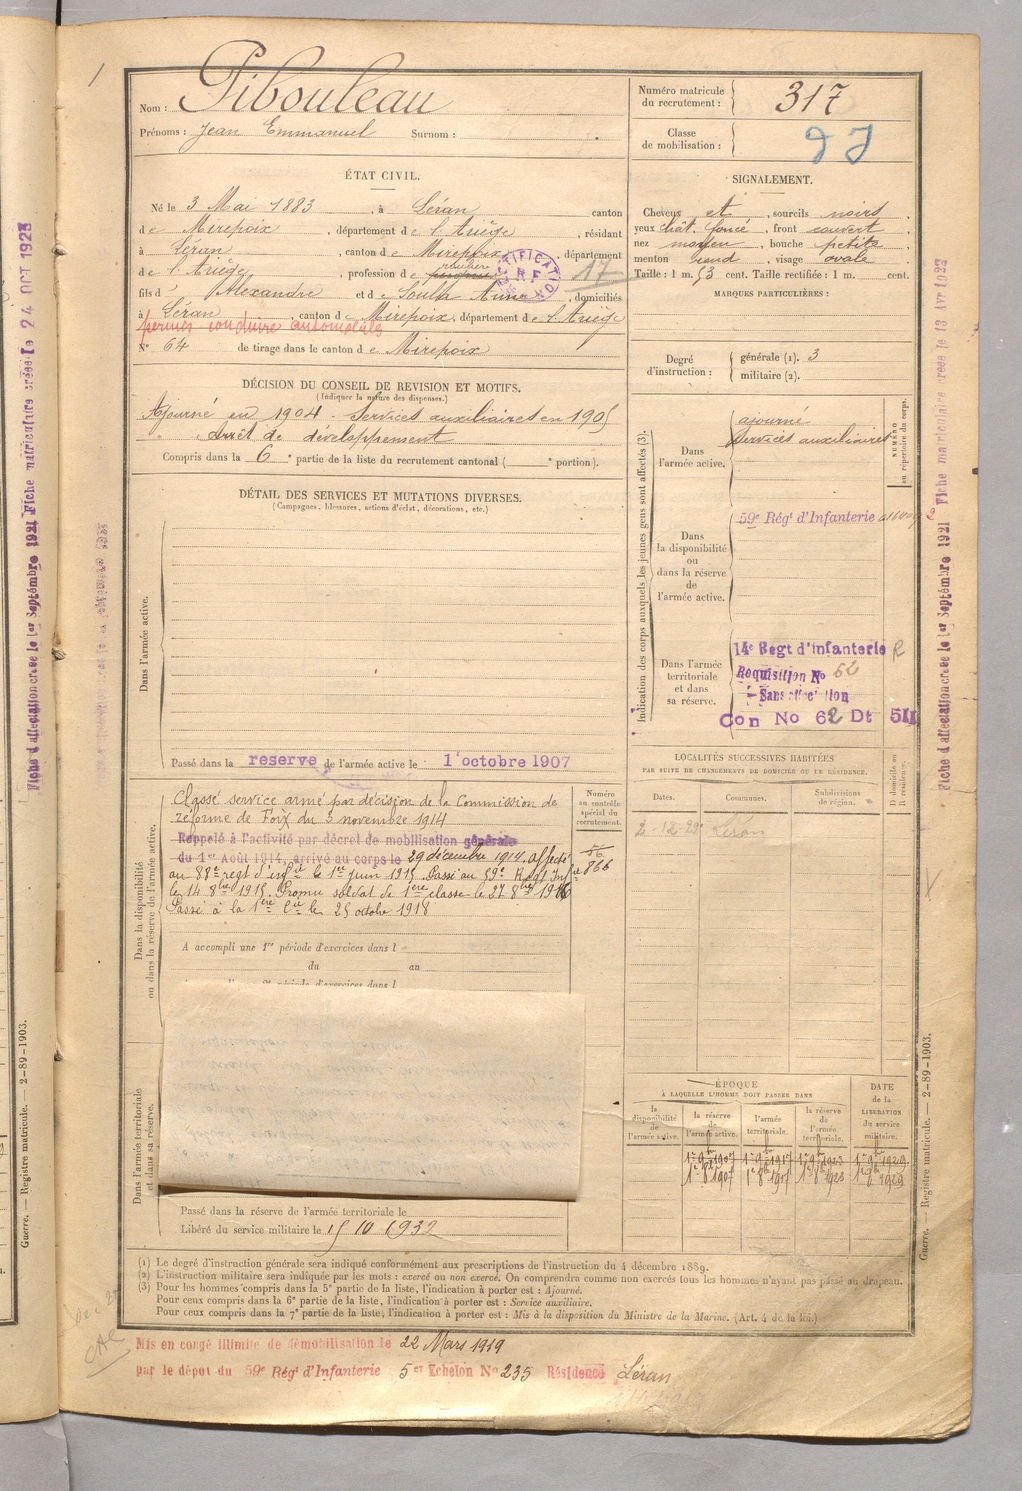 Nom : Pibouleau
Prénoms : Jean Emmanuel Surnom :
Numéro matricule du recrutement : 317
Classe de mobilisation :
ÉTAT CIVIL.
Né le 3 Mai 1883, à Léran canton
de Mirepoix, département de l'Ariège, résidant
à Léran, canton de Mirepoix, département
de l'Ariège, profession de
fils d' Alexandre et de Soulla Anne, domiciliés
à Léran, canton de Mirepoix, département de l'Ariège
permis conduire automobiles
N° 64 de tirage dans le canton de Mirepoix
17
SIGNALEMENT.
Cheveux et, sourcils noirs,
yeux chât. foncé, front couvert,
nez moyen, bouche petite,
menton rond, visage ovale.
Taille : 1 m. 53 cent. Taille rectifiée : 1 m. cent.
MARQUES PARTICULIÈRES :
Degré d'instruction : générale (1). 3
militaire (2).
DÉCISION DU CONSEIL DE REVISION ET MOTIFS.
(Indiquer la nature des dispenses.)
Ajourné en 1904 - Services auxiliaires en 1905
Arrêt de développement
Compris dans la 6e partie de la liste du recrutement cantonal ( e portion).
DÉTAIL DES SERVICES ET MUTATIONS DIVERSES.
(Campagnes, blessures, actions d'éclat, décorations, etc.)
Dans l'armée active.
Passé dans la reserve de l'armée active le 1er octobre 1907
Indication des corps auxquels les jeunes gens sont affectés (3).
NUMÉRO au répertoire du corps.
Dans l'armée active.
ajourné
services auxiliaires
Dans la disponibilité ou dans la réserve de l'armée active.
59e Régt d'Infanterie
Dans l'armée territoriale et dans sa réserve.
14e Regt d'infanterie
Requisition No 52
Sans affectation
Con No 62 Dt 5II
Dans la disponibilité ou dans la réserve de l'armée active.
Classé service armé par décision de la Commission de
réforme de Foix du 3 novembre 1914
Rappelé à l'activité par décret de mobilisation générale
du 1er Août 1914, arrivé au corps le 29 décembre 1914. affecté
au 88e regt d'infie le 1er juin 1915 Passé au 59e Régt Infie
le 14 8bre 1915. Promu soldat de 1ère classe le 27 8bre 1916
Passé à la 1ère Cie le 25 octobre 1918
A accompli une 1re période d'exercices dans l
du au
Numéro au contrôle spécial du recrutement.
866
LOCALITÉS SUCCESSIVES HABITÉES
PAR SUITE DE CHANGEMENTS DE DOMICILE OU DE RÉSIDENCE.
Dates. Communes. Subdivisions de région. D domicile ou R résidence.
2-12-29 Léran
ÉPOQUE
À LAQUELLE L'HOMME DOIT PASSER DANS
la disponibilité de l'armée active. la réserve de l'armée active. l'armée territoriale. la réserve de l'armée territoriale. DATE de la LIBÉRATION du service militaire.
1er 9bre 1907 1er 9bre 1917 1er 9bre 1923 1er 9bre 1929
1er 8bre 1907
Dans l'armée territoriale et dans sa réserve.
Passé dans la réserve de l'armée territoriale le
Libéré du service militaire le 15 10 1932
(1) Le degré d'instruction générale sera indiqué conformément aux prescriptions de l'instruction du 4 décembre 1889.
(2) L'instruction militaire sera indiquée par les mots : exercé ou non exercé. On comprendra comme non exercés tous les hommes n'ayant pas passé au drapeau.
(3) Pour les hommes compris dans la 5e partie de la liste, l'indication à porter est : Ajourné.
Pour ceux compris dans la 6e partie de la liste, l'indication à porter est : Service auxiliaire.
Pour ceux compris dans la 7e partie de la liste, l'indication à porter est : Mis à la disposition du Ministre de la Marine. (Art. 4 de la loi.)
Mis en congé illimité de démobilisation le 22 Mars 1919
par le dépot du 59e Régt d'Infanterie 5e Echelon No 235 Résidence Léran
Guerre. — Registre matricule. — 2-89-1903.
Guerre. — Registre matricule. — 2-89-1903.
Fiche d'affectation créée le 1er Septembre 1921 Fiche matriculaire créée le 24 OCT 1923
Fiche d'affectation créée le 1er Septembre 1921 Fiche matriculaire créée le